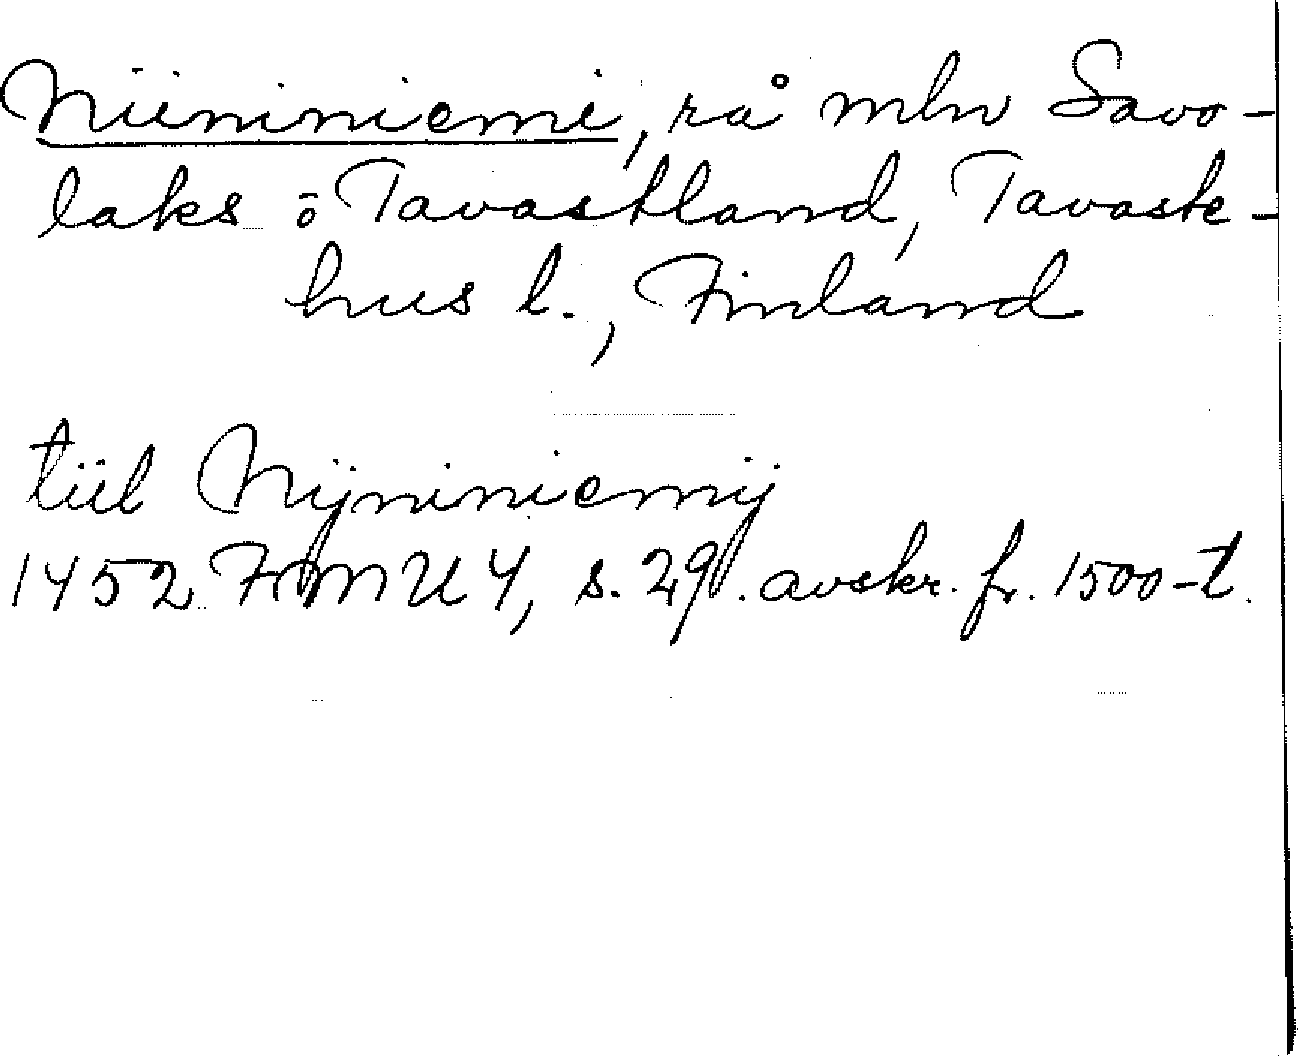 Niininiemi, rå mln Savo-
laks o Tavastland, Tavaste-
hus l., Finland
tiil Nijniniemij
1452 FMU 4, s. 29. avskr. fr. 1500-t.